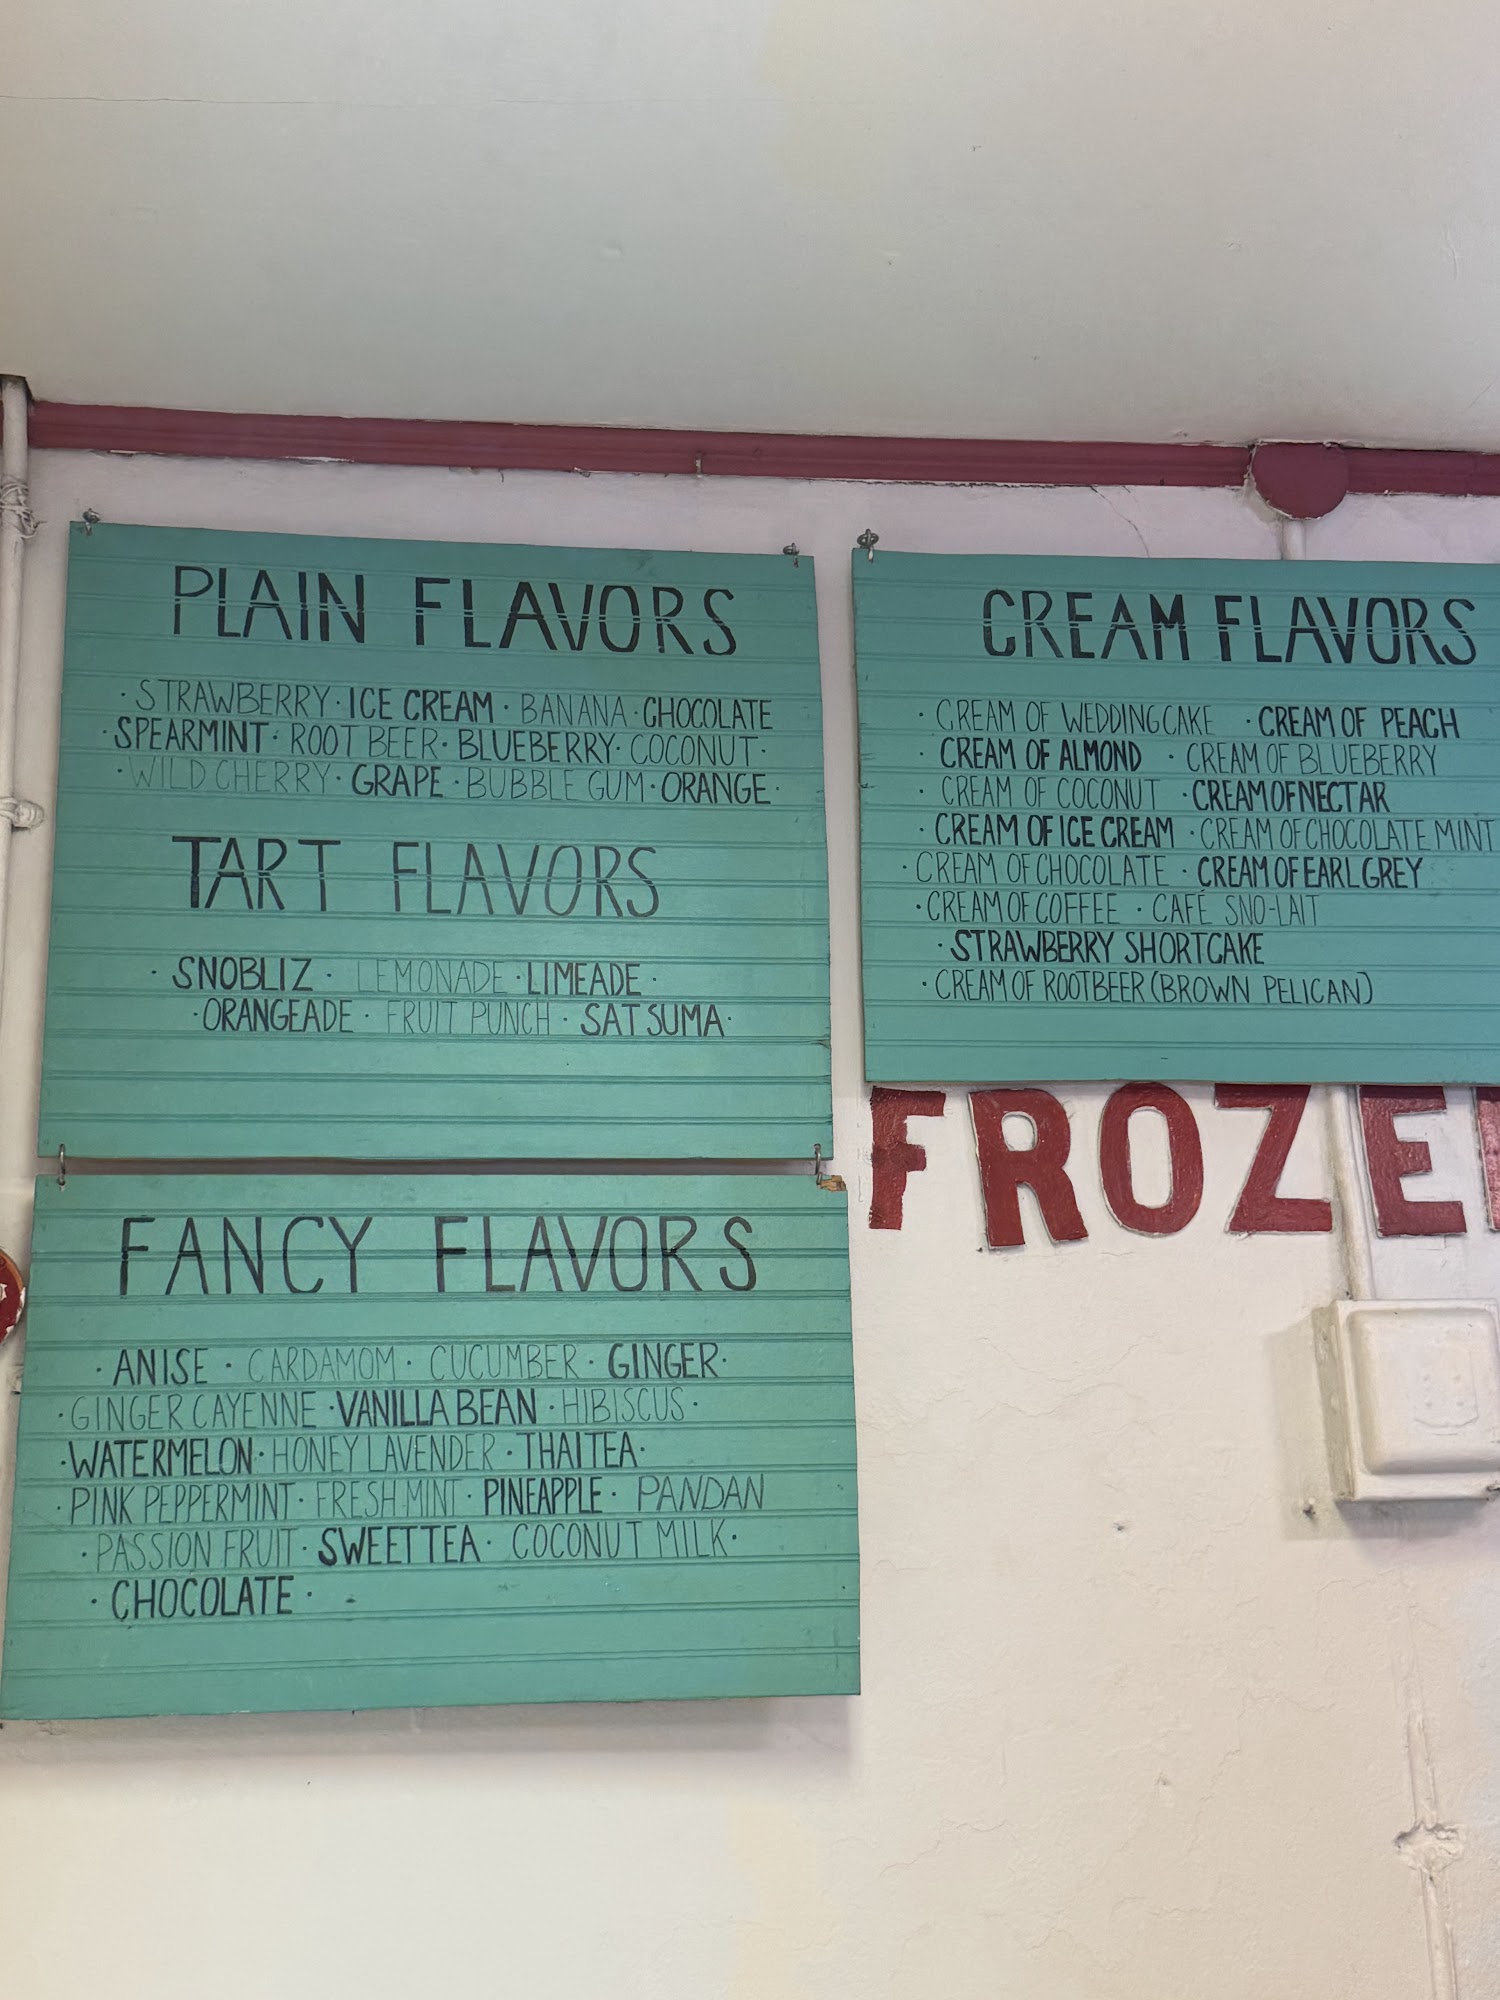 PLAIN FLAVORS
· STRAWBERRY · ICE CREAM · BANANA · CHOCOLATE
· SPEARMINT · ROOT BEER · BLUEBERRY · COCONUT ·
· WILD CHERRY · GRAPE · BUBBLE GUM · ORANGE ·
TART FLAVORS
· SNOBLIZ · LEMONADE · LIMEADE ·
· ORANGEADE · FRUIT PUNCH · SATSUMA ·
FANCY FLAVORS
· ANISE · CARDAMOM · CUCUMBER · GINGER ·
· GINGER CAYENNE · VANILLA BEAN · HIBISCUS ·
· WATERMELON · HONEY LAVENDER · THAI TEA ·
· PINK PEPPERMINT · FRESH MINT · PINEAPPLE · PANDAN
· PASSION FRUIT · SWEET TEA · COCONUT MILK ·
· CHOCOLATE ·
CREAM FLAVORS
· CREAM OF WEDDING CAKE · CREAM OF PEACH
· CREAM OF ALMOND · CREAM OF BLUEBERRY
· CREAM OF COCONUT · CREAM OF NECTAR
· CREAM OF ICE CREAM · CREAM OF CHOCOLATE MINT
· CREAM OF CHOCOLATE · CREAM OF EARL GREY
· CREAM OF COFFEE · CAFÉ SNO-LAIT
· STRAWBERRY SHORTCAKE
· CREAM OF ROOTBEER (BROWN PELICAN)
FROZE